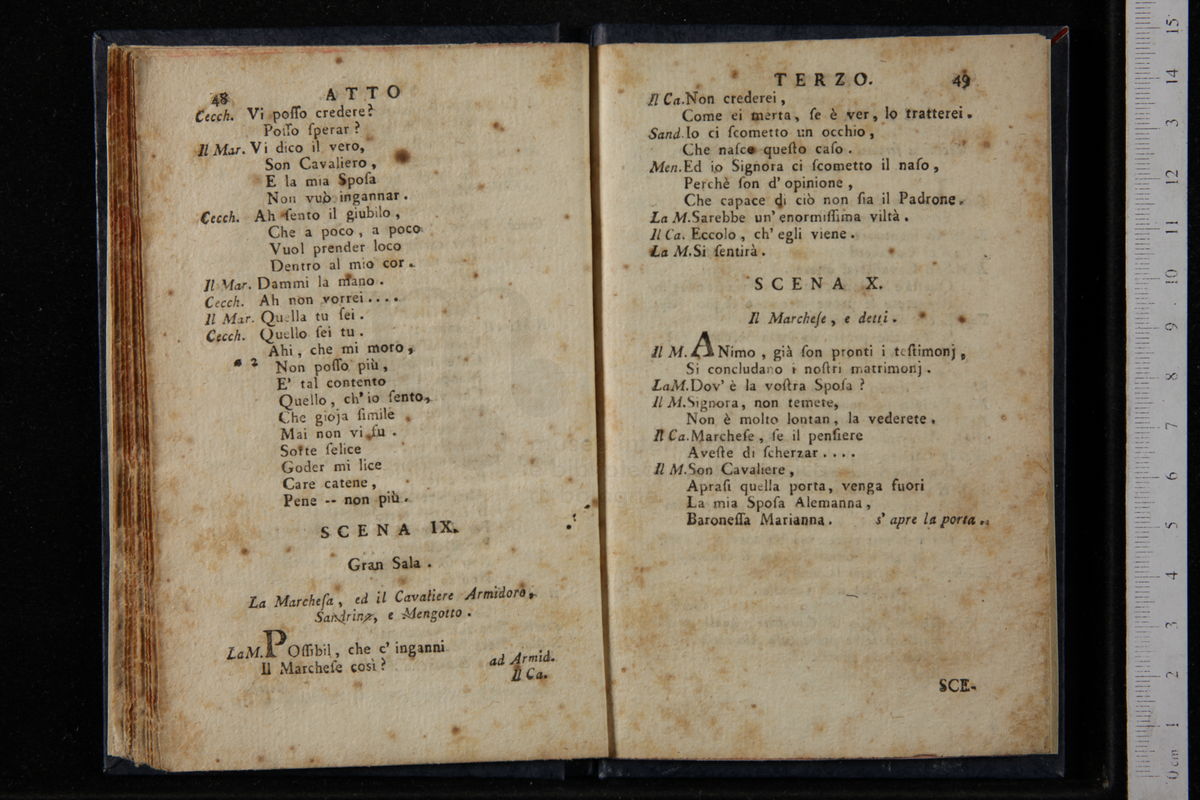 48 ATTO
Cecch. Vi poſſo credere?
Poſſo ſperar?
Il Mar. Vi dico il vero,
Son Cavaliero,
E la mia Spoſa
Non vuò ingannar.
Cecch. Ah ſento il giubilo,
Che a poco, a poco
Vuol prender loco
Dentro al mio cor.
Il Mar. Dammi la mano.
Cecch. Ah non vorrei....
Il Mar. Quella tu ſei.
Cecch. Quello ſei tu.
Ahi, che mi moro,
a 2 Non poſſo più,
E' tal contento
Quello, ch'io ſento,
Che gioja ſimile
Mai non vi fu.
Sorte felice
Goder mi lice
Care catene,
Pene -- non più.
SCENA IX.
Gran Sala.
La Marcheſa, ed il Cavaliere Armidoro,
Sandrina, e Mengotto.
La M. POſſibil, che c'inganni
Il Marcheſe così? ad Armid.
Il Ca.
TERZO. 49
Il Ca. Non crederei,
Come ei merta, ſe è ver, lo tratterei.
Sand. Io ci ſcometto un occhio,
Che naſce queſto caſo.
Men. Ed io Signora ci ſcometto il naſo,
Perchè ſon d'opinione,
Che capace di ciò non ſia il Padrone.
La M. Sarebbe un'enormiſſima viltà.
Il Ca. Eccolo, ch'egli viene.
La M. Si ſentirà.
SCENA X.
Il Marcheſe, e detti.
Il M. ANimo, già ſon pronti i teſtimonj,
Si concludano i noſtri matrimonj.
La M. Dov'è la voſtra Spoſa?
Il M. Signora, non temete,
Non è molto lontan, la vederete.
Il Ca. Marcheſe, ſe il penſiere
Aveſte di ſcherzar....
Il M. Son Cavaliere,
Apraſi quella porta, venga fuori
La mia Spoſa Alemanna,
Baroneſſa Marianna. s'apre la porta.
SCE-